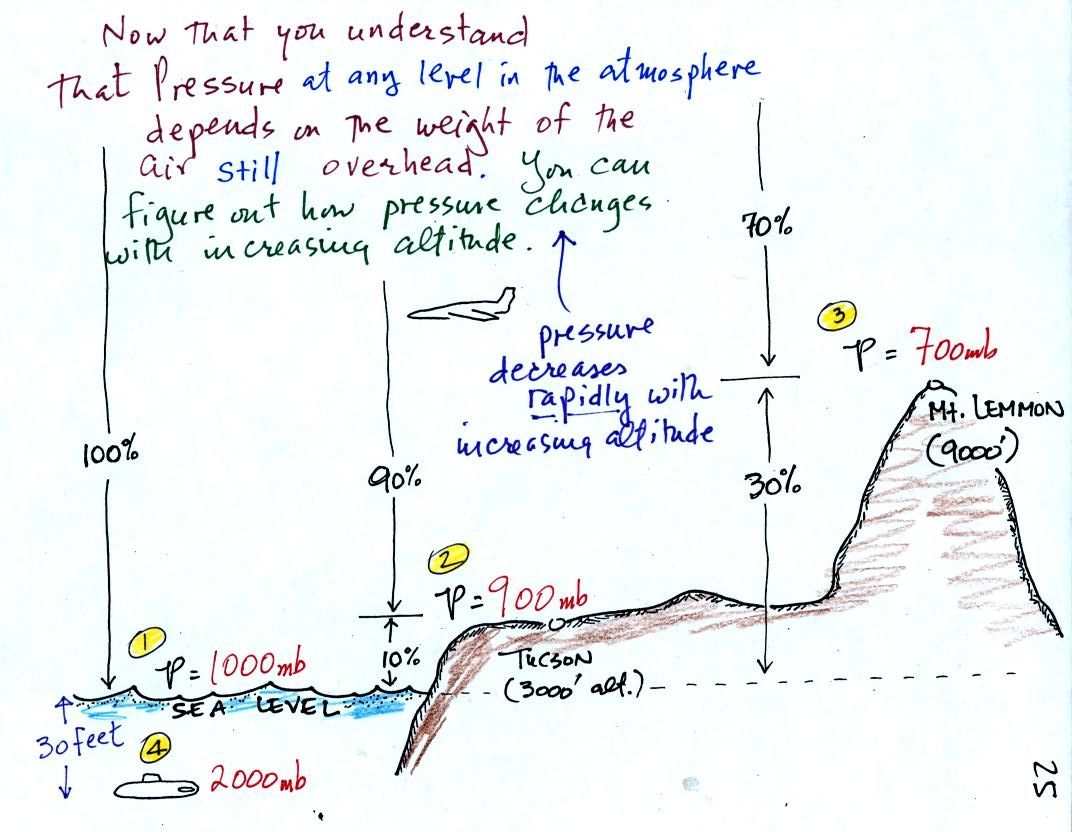 Now that you understand
that Pressure at any level in the atmosphere
depends on the weight of the
air still overhead. You can
figure out how pressure changes
with increasing altitude.
pressure
decreases
rapidly with
increasing altitude
100%
90%
10%
70%
30%
1
P = 1000mb
SEA LEVEL
2
P = 900mb
TUCSON
(3000' alt.)
3
P = 700mb
Mt. LEMMON
(9000')
30 feet
4
2000mb
25